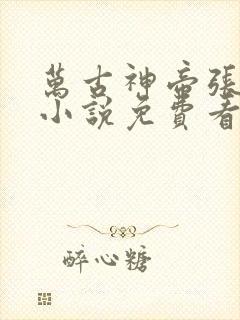 萬古神帝張
小說免費看
醉心糖